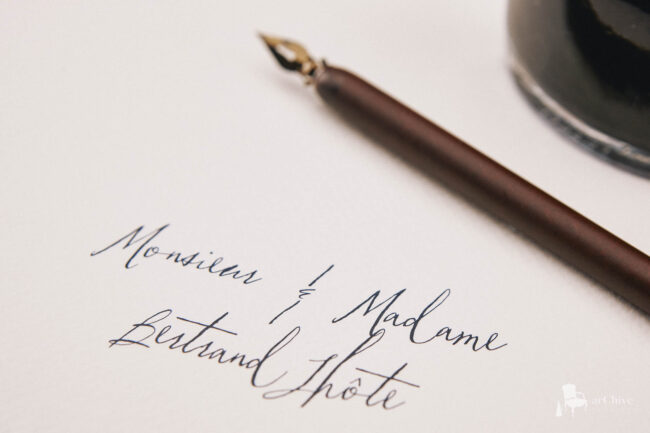 Monsieur & Madame
Bertrand Lhôte
arChive